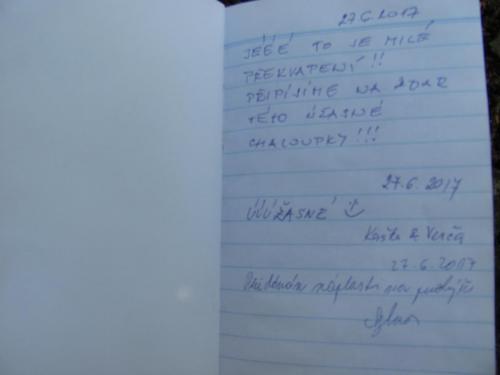 27.6.2017
JÉÉÉ TO JE MILÉ
PŘEKVAPENÍ!!
PŘIPÍJÍME NA ZDAR
TÉTO ÚŽASNÉ
CHALOUPKY!!!
27.6.2017
ÚÚÚŽASNÉ
Verča
27.6.2017
náplast na puchýře